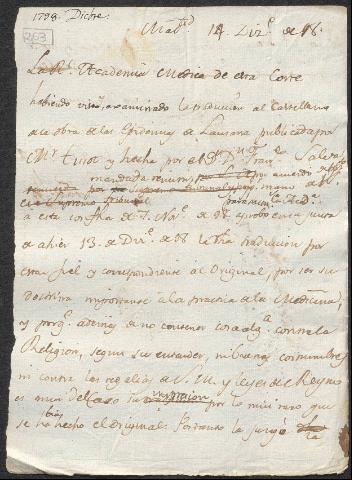 1798. Dicbre.
263
Mad.d 14 Diz.e de 98.
La R.l Academia Medica de esta Corte
habiendo visto, y examinado la traduccion al Castellano
de la obra de las Epidemias de Lausana publicada por
M.r Tissot y hecha por el D.r D.n
mandada remitir por acuerdo
Supremo Tribunal
a esta con fha de 7. Nov.e de 98 aprobó en su junta
de ahier 13. de Diz.e de 98 dicha traduccion por
estar fiel y correspondiente al Original, por ser su
doctrina importante á la practica de la Medicina,
y porq.e ademas de no contener cosa alg.a contra la
Religion, segun su entender, ni buenas costumbres
ni contra las regalias de S. M. y leyes del Reyno
es mui del caso su impresion por lo mui raro que
se ha hecho el original. Por tanto la juzga